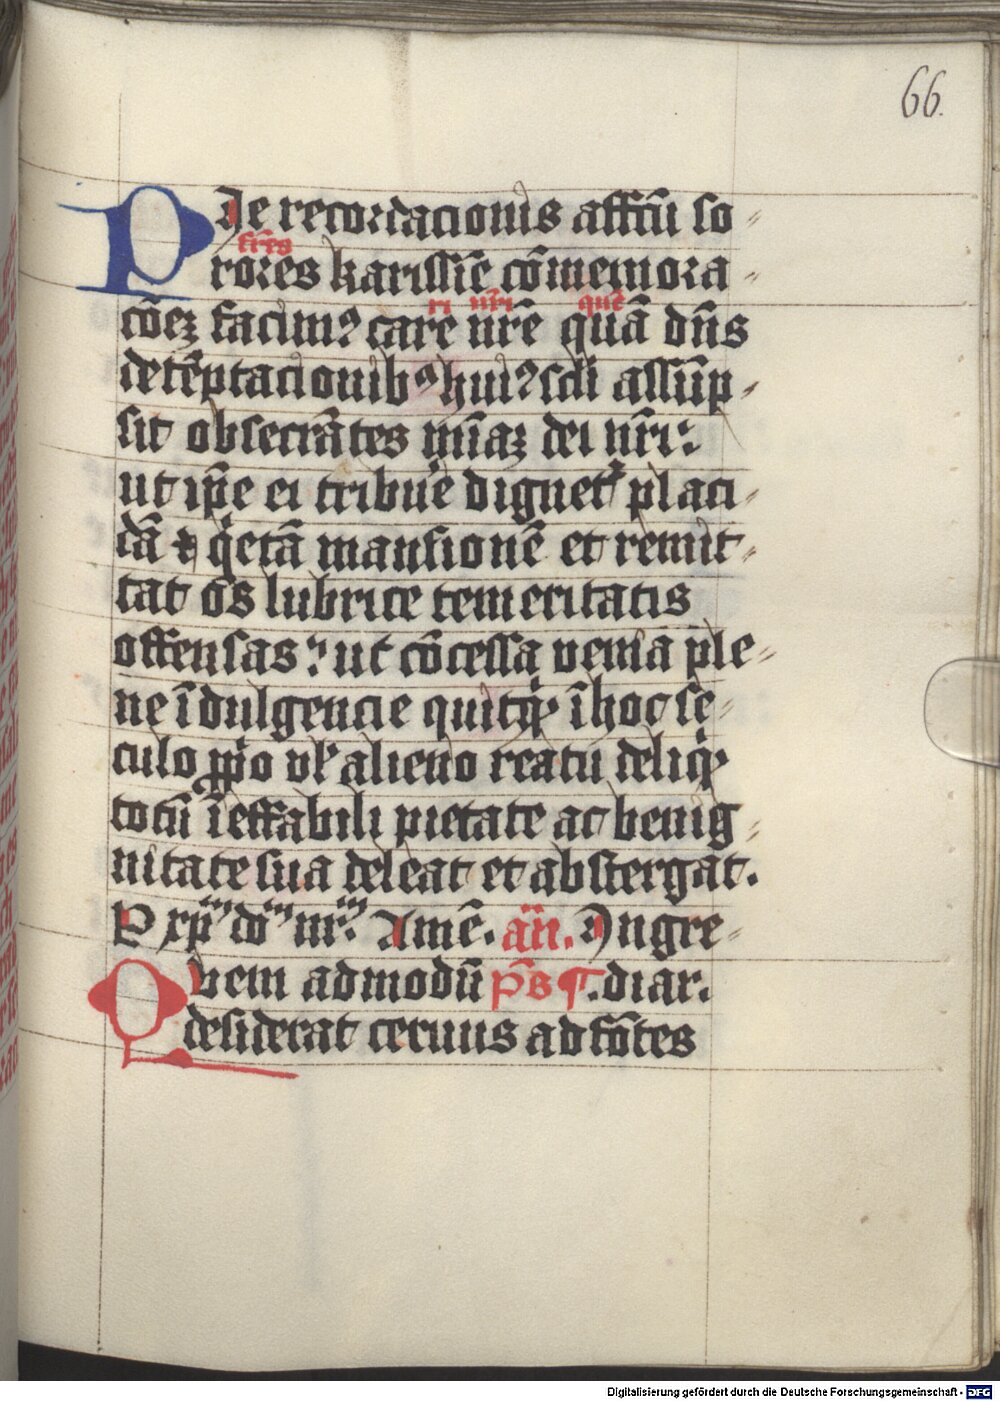 66.
PIe recordacionis affc̄ū so⸗
fr̄es
rores karissīe cōmemora⸗
ri nr̄i quē
cōeꝫ facimꝰ care nr̄e quā dn̄s
de tēptacionibꝰ huiꝰ scl̄i assūp⸗
sit obsecrātes mīaꝫ dei nr̄i:
ut ip̄e ei tribue dignet̄ placi⸗
dā ⁊ q̇etā mansionē et remit⸗
tat ōs lubrice temeritatis
offensas: ut cōcessa venia ple⸗
ne īdulgencie quitq̇d ī hoc se⸗
culo p̱p̱o vl̓ alieno reatu deliq̇t
totū īeffabili pietate ac benig⸗
nitate sua deleat et abstergat.
P xp̄m dm̄ nr̄m. Amē. an̄. Ingre⸗
Quem admodū ps̄ ¶. diar.
desiderat ceruus ad fōtes
Digitalisierung gefördert durch die Deutsche Forschungsgemeinschaft - DFG